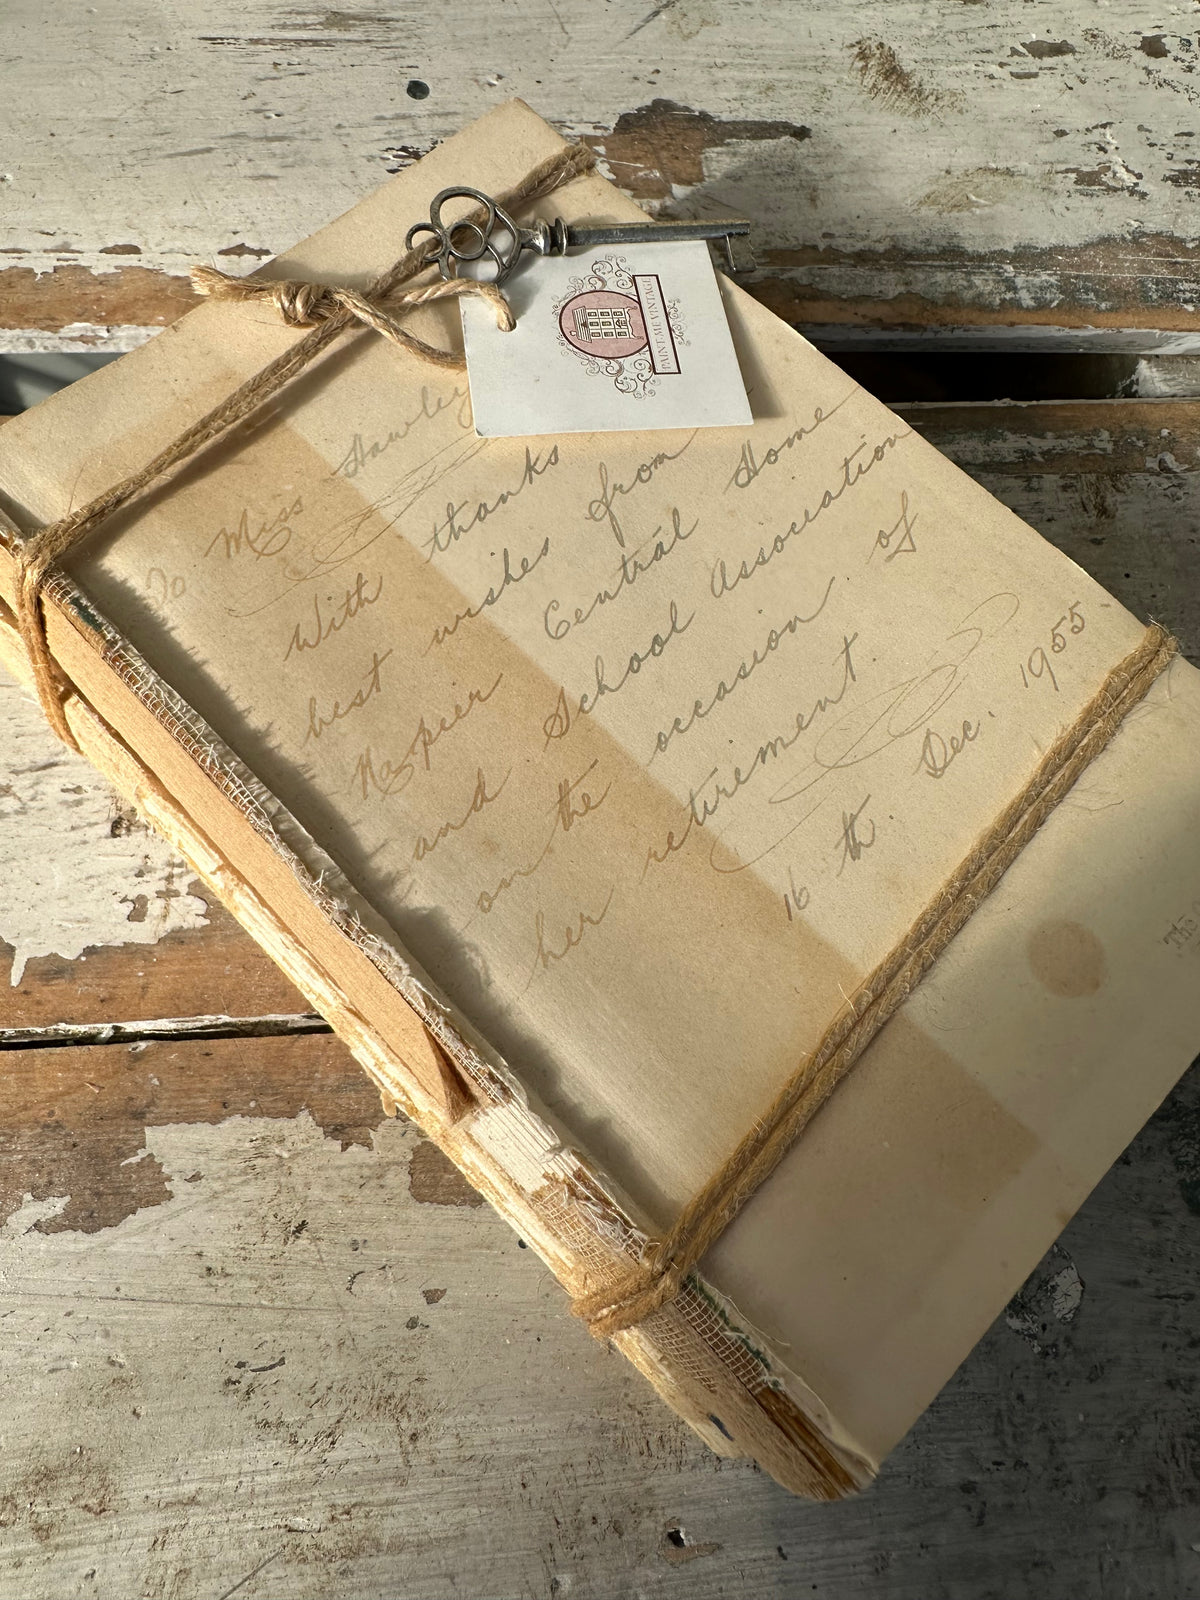 PAINT ME VINTAGE
To Miss Hawley
With thanks
best wishes from
Napier Central Home
and School Association
on the occasion of
her retirement.
16 th. Dec. 1955
The